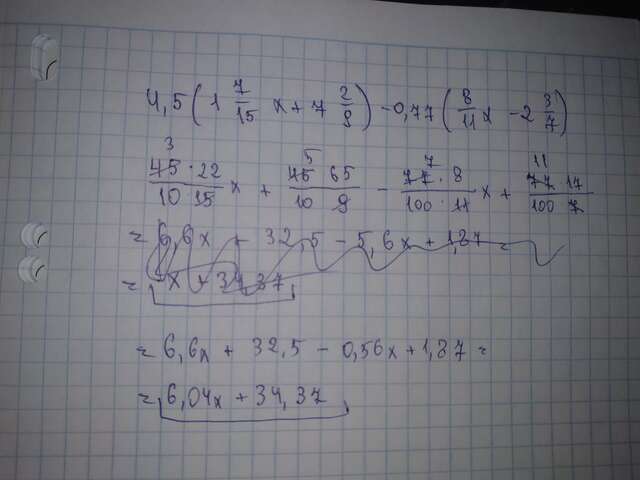 4,5(1 7/15 x + 7 2/9) - 0,77(8/11 x - 2 3/7)
45·22/10·15 x + 45 65/10 9 - 77·8/100·11 x + 77 17/100 7
3 5 7 11
= 6,6x + 32,5 - 5,6x + 1,87 =
= x + 34,37
= 6,6x + 32,5 - 0,56x + 1,87 =
= 6,04x + 34,37